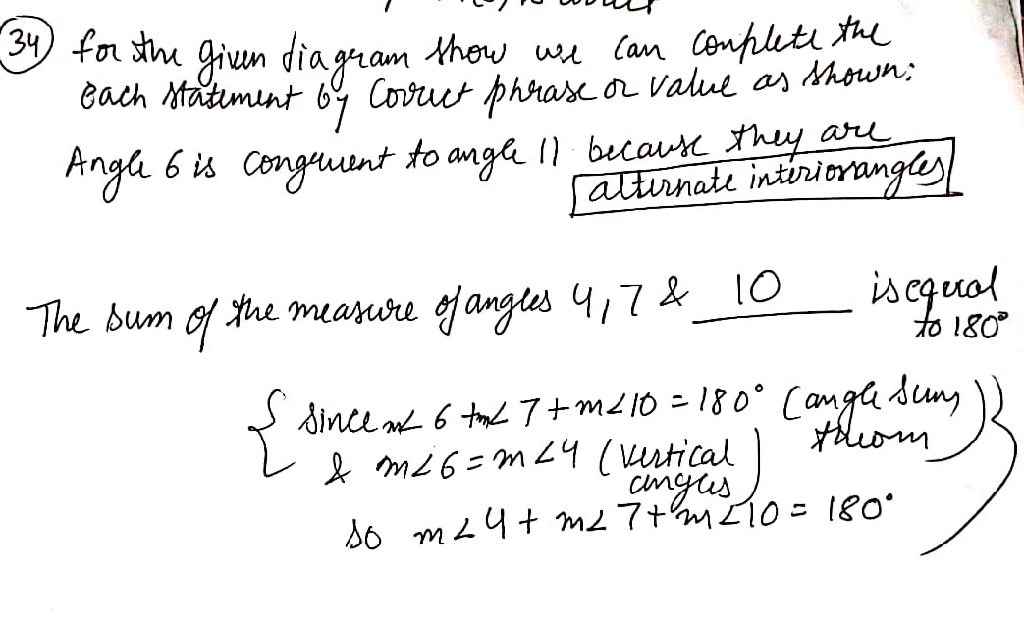 34 for the given diagram show we can complete the
each statement by correct phrase or value as shown:
Angle 6 is congruent to angle 11 because they are
alternate interior angles
The sum of the measure of angles 4, 7 & 10 is equal
to 180°
{ since m∠6 + m∠7 + m∠10 = 180° (angle sum
theorm)
& m∠6 = m∠4 (vertical
angles)
so m∠4 + m∠7 + m∠10 = 180° }